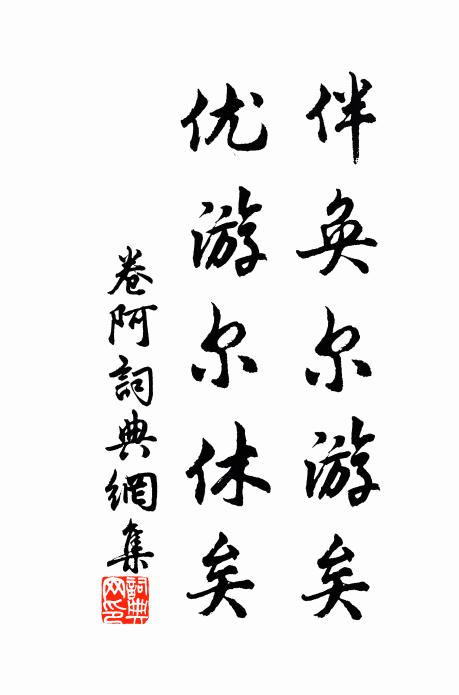 伴奂尔游矣
优游尔休矣
卷阿詞典網集
詞典網印